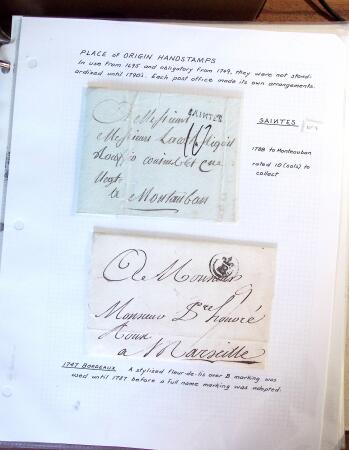 PLACE of ORIGIN HANDSTAMPS
In use from 1695 and obligatory from 1749, they were not stand-
ardized until 1790's. Each post office made its own arrangements.
SAINTES
A Messieurs
Messieurs
SAINTES
a Montauban
1788 to Montauban
rated 10 (sols) to
collect
A Monsieur
Monsieur Pre honoré
Roux
a Marseille
1747 BORDEAUX A stylized fleur-de-lis over B marking was
used until 1787 before a full name marking was adopted.